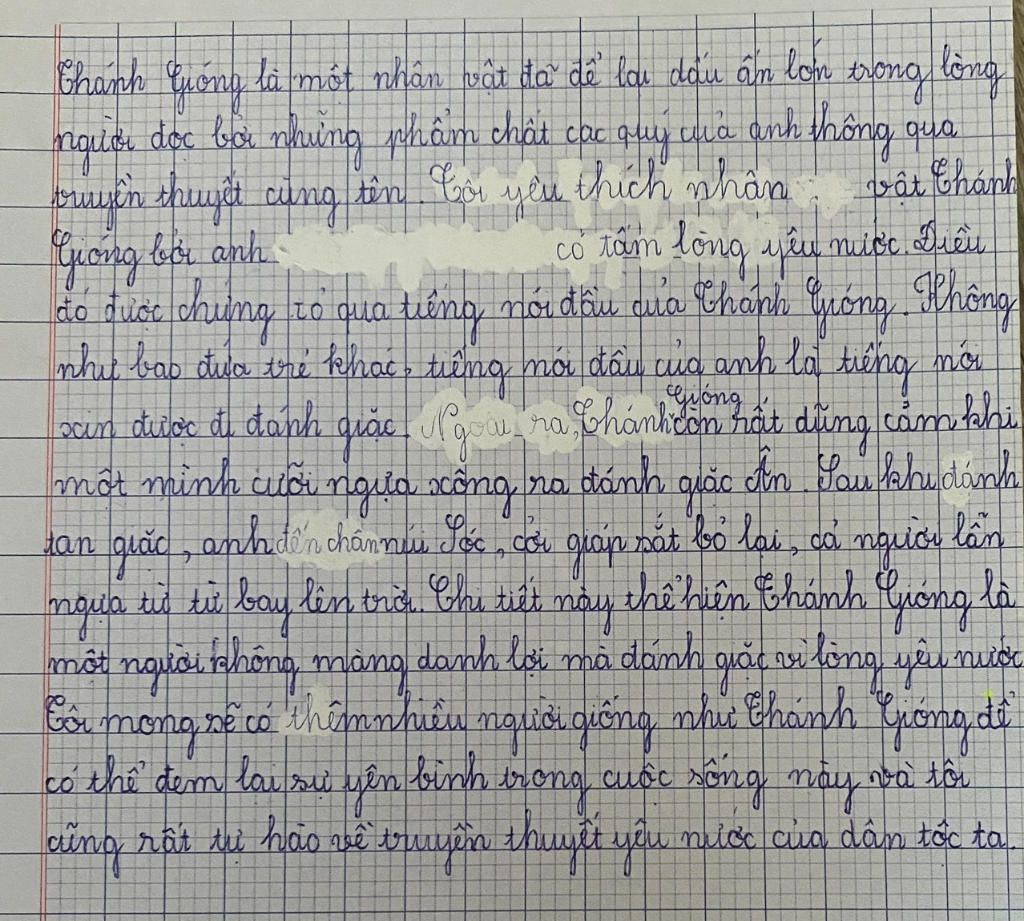 Thánh Gióng là một nhân vật đã để lại dấu ấn lớn trong lòng
người đọc bởi những phẩm chất cao quý của anh thông qua
truyền thuyết cùng tên. Tôi yêu thích nhân vật Thánh
Gióng bởi anh có tấm lòng yêu nước. Điều
đó được chứng tỏ qua tiếng nói đầu của Thánh Gióng. Không
như bao đứa trẻ khác, tiếng nói đầu của anh là tiếng nói
xin được đi đánh giặc. Ngoài ra, Thánh Gióng còn rất dũng cảm khi
một mình cưỡi ngựa xông ra đánh giặc Ân. Sau khi đánh
tan giặc, anh đến chân núi Sóc, cởi giáp sắt bỏ lại, cả người lẫn
ngựa từ từ bay lên trời. Chi tiết này thể hiện Thánh Gióng là
một người không màng danh lợi mà đánh giặc vì lòng yêu nước
Tôi mong sẽ có thêm nhiều người giống như Thánh Gióng để
có thể đem lại sự yên bình trong cuộc sống này và tôi
cũng rất tự hào về truyền thuyết yêu nước của dân tộc ta.